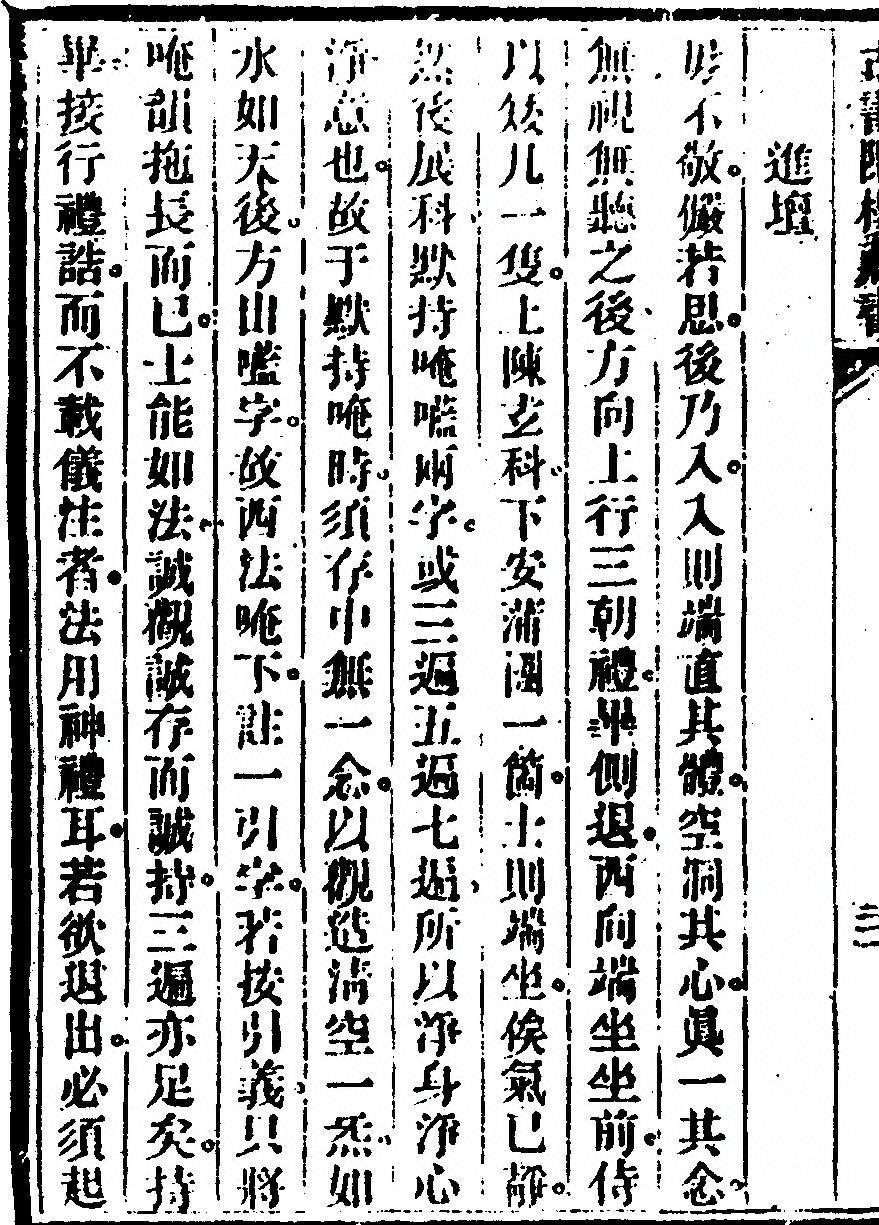 古書隱樓藏書
進壇
毋不敬儼若思後乃入入則端直其體空洞其心眞一其念
無視無聽之後方向上行三朝禮畢側退西向端坐坐前侍
以矮几一隻上陳玄科下安蒲團一箇士則端坐俟氣已靜
然後展科默持唵嚂兩字或三遍五遍七遍所以淨身淨心
淨意也故于默持唵時須存中無一念以觀造清空一炁如
水如天後方出嚂字故西法唵下註一引字若按引義只將
唵韻拖長而已士能如法誠觀誠存而誠持三遍亦足矣持
畢接行禮誥而不載儀注者法用神禮耳若欲退出必須起